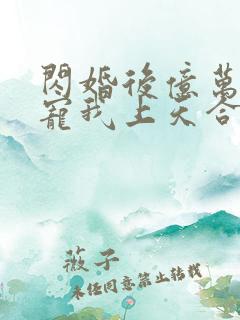 閃婚後億萬
寵我上天合
薇子
未任同意禁止轉載